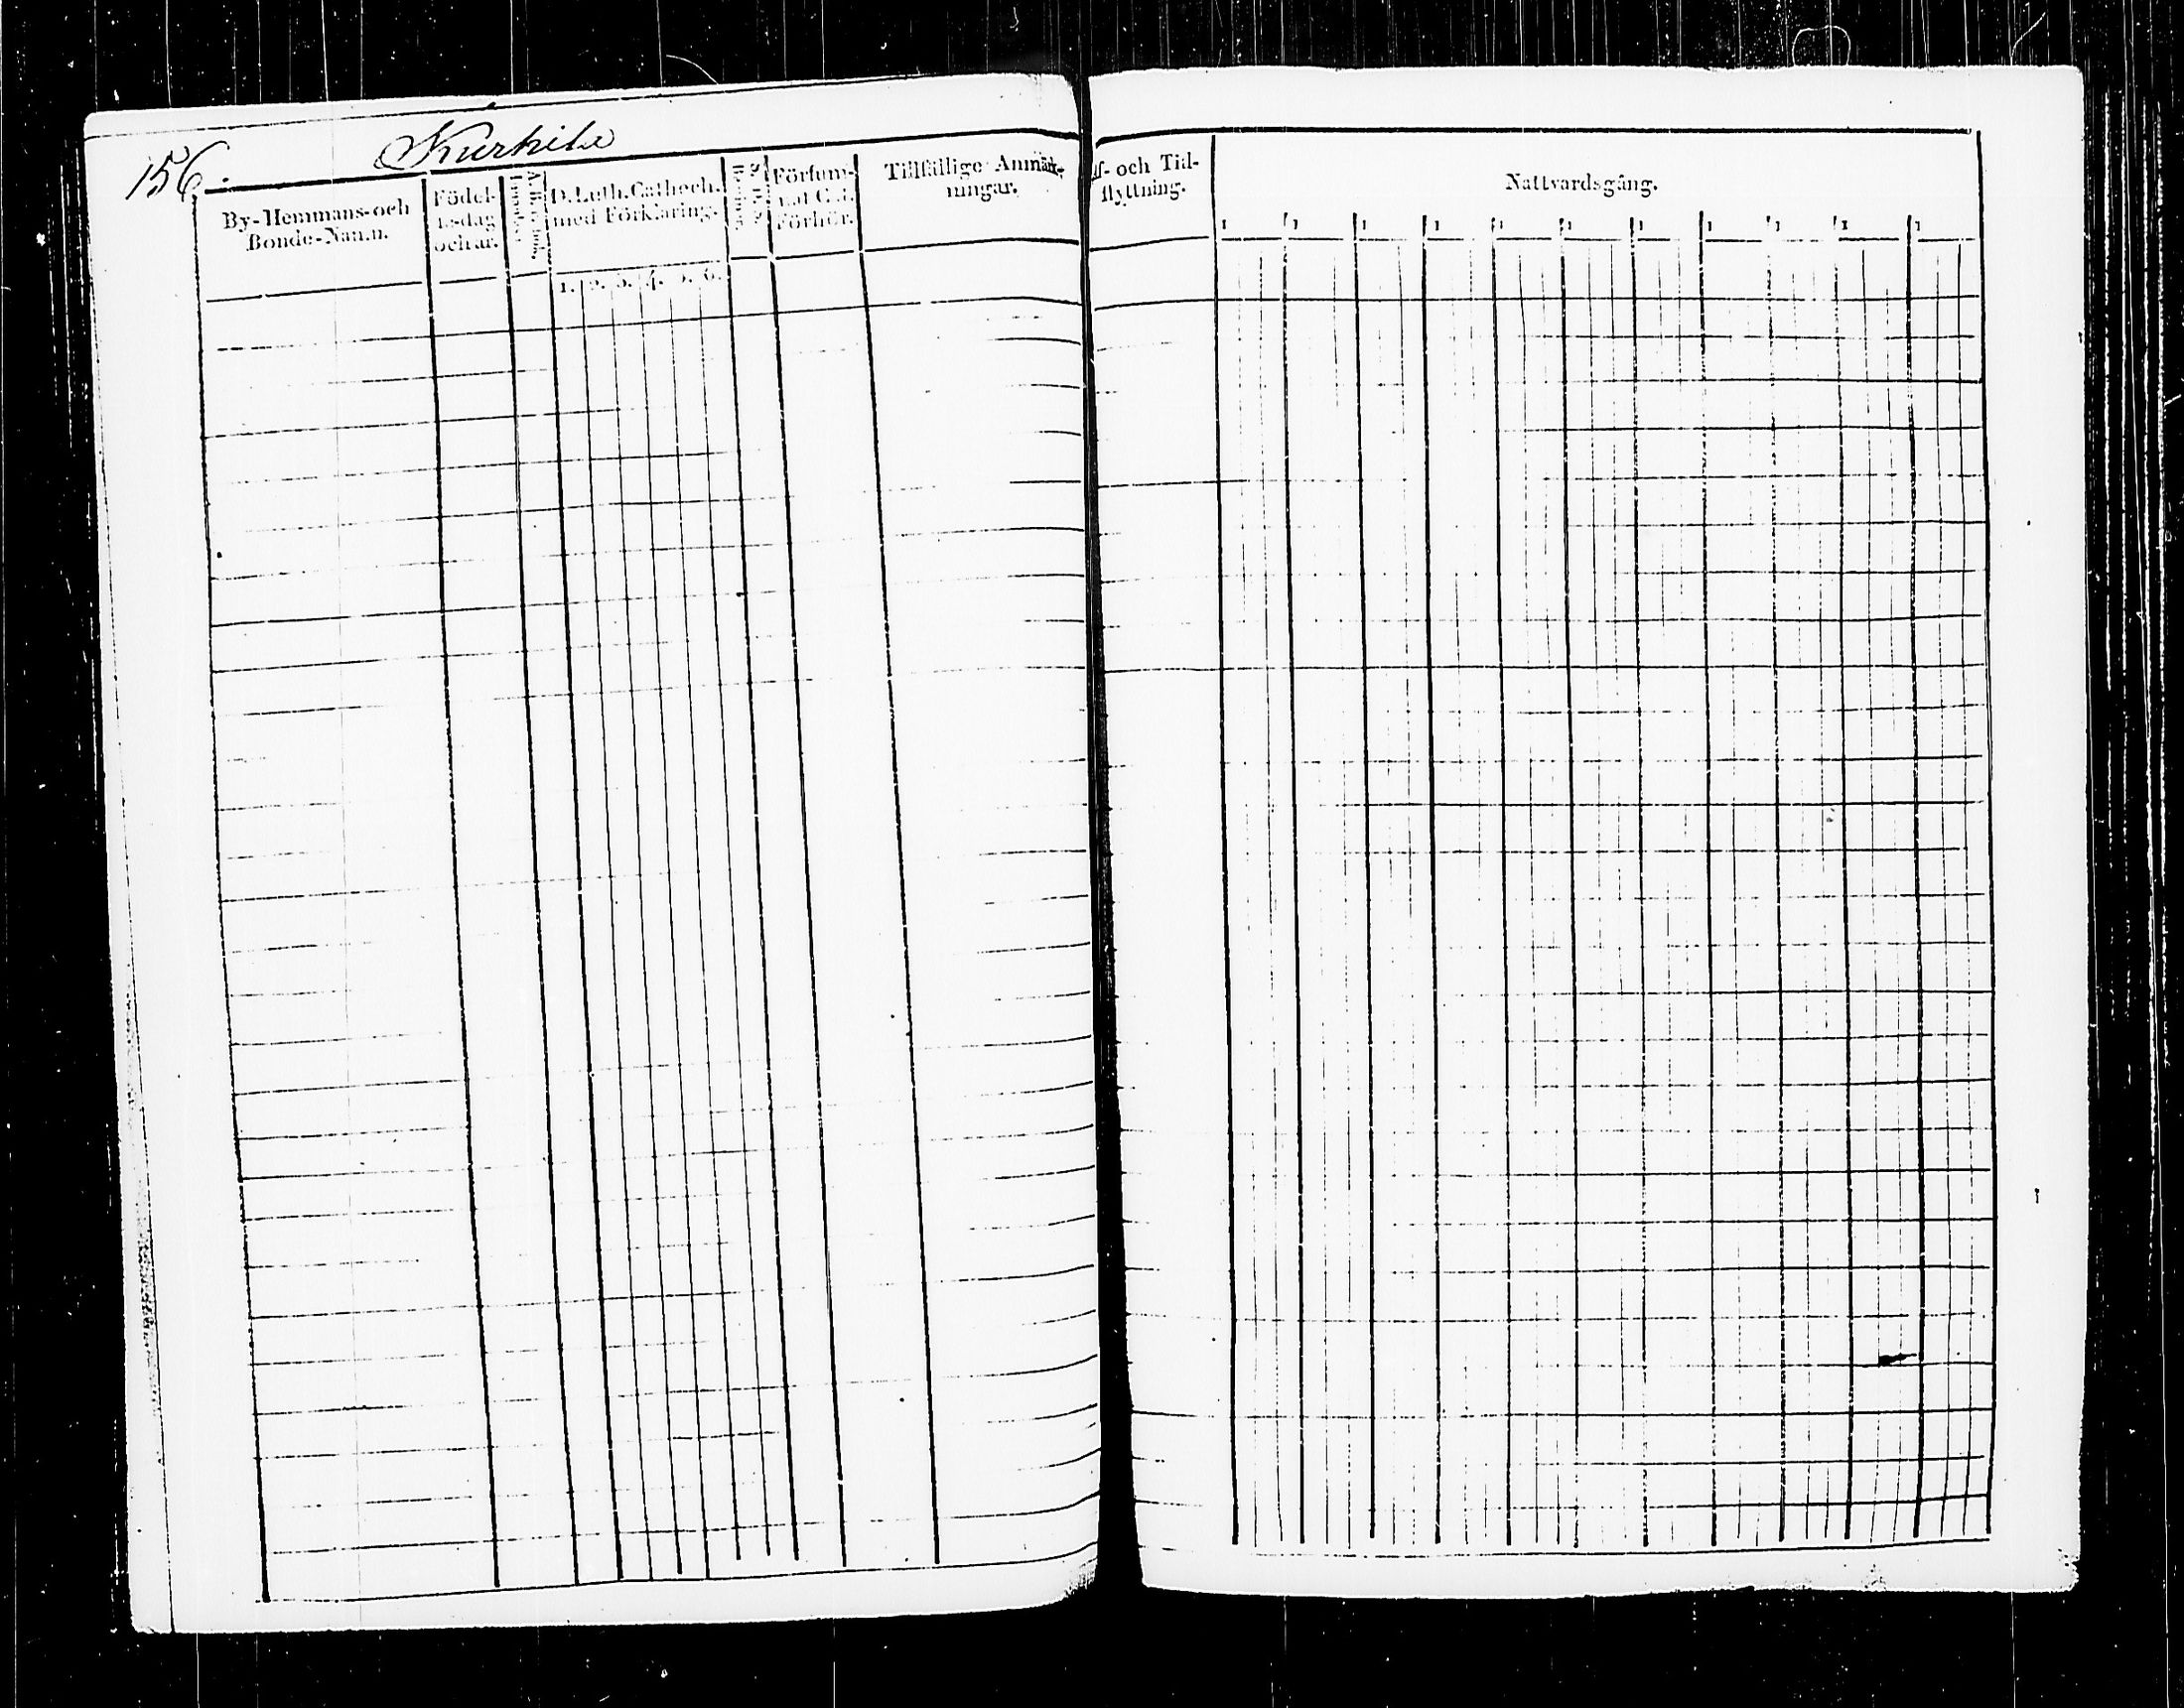 156.
Kurkila
By-Hemmans-och
Bonde-Namn.
Födel-
sedag
och år.
A. B. C. Bok.
D. Luth. Cathech.
med Förklaring.
1. 2. 3. 4. 5. 6.
Försum-
mat C. t.
Förhör.
Tillfällige Anmärk-
ningar.
Af- och Till-
flyttning.
Nattvardsgång.
1 1 1 1 1 1 1 1 1 1 1